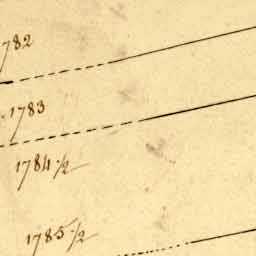 1782
1783
1784 1/2
1785 1/2